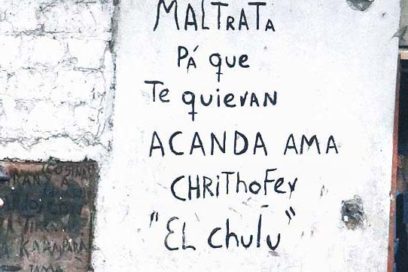 MALTRATA
PÁ que
Te quieran
ACANDA AMA
CHRIThoFer
"EL chulu"